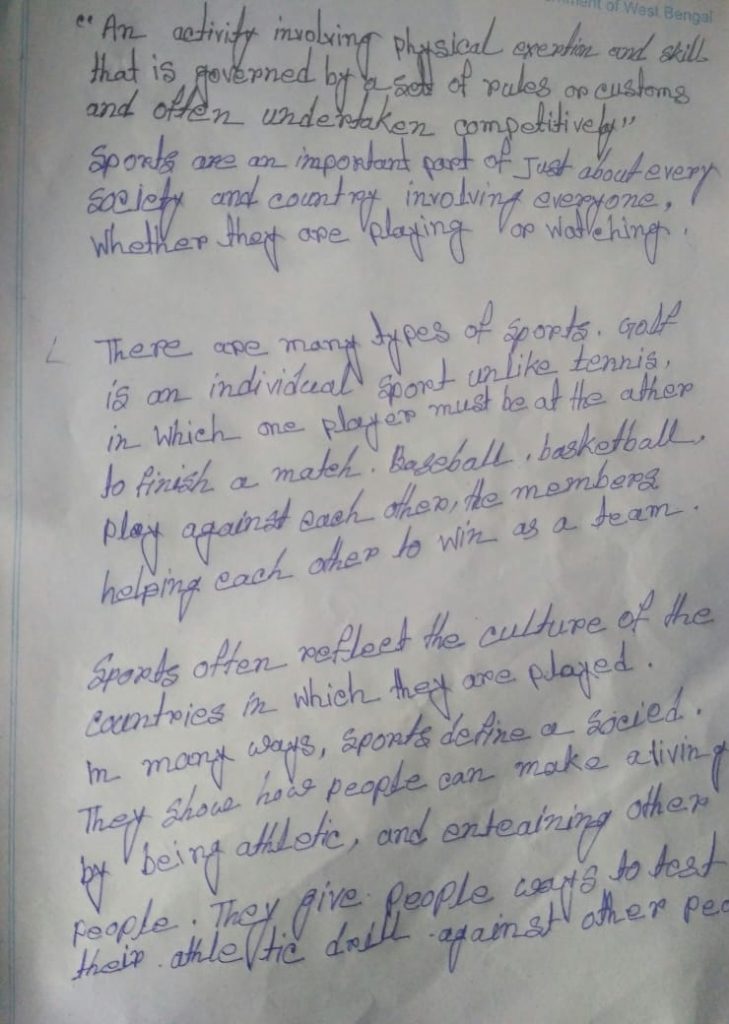 ment of West Bengal
"An activity involving physical exertion and skill
that is governed by a set of rules or customs
and often undertaken competitively"
Sports are an important part of Just about every
society and country involving everyone,
Whether they are playing or watching.
There are many types of sports. Golf
is an individual sport unlike tennis,
in which one player must be at the ather
to finish a match. Baseball, basketball,
play against each other, the members
helping each other to win as a team.
Sports often reflect the culture of the
countries in which they are played.
In many ways, sports define a socied.
They show how people can make a living
by being athletic, and enteaining other
people. They give people ways to test
their athletic drill against other peo